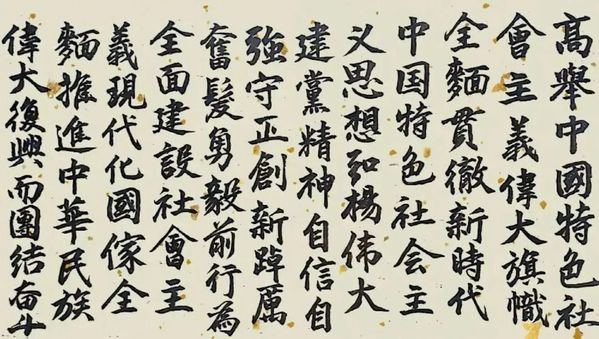 高舉中國特色社
會主義偉大旗幟
全麵貫徹新時代
中国特色社会主
义思想弘楊伟大
建黨精神自信自
強守正創新踔厲
奮髮勇毅前行為
全面建設社會主
義現代化國傢全
麵推進中華民族
偉大復興而團结奋斗